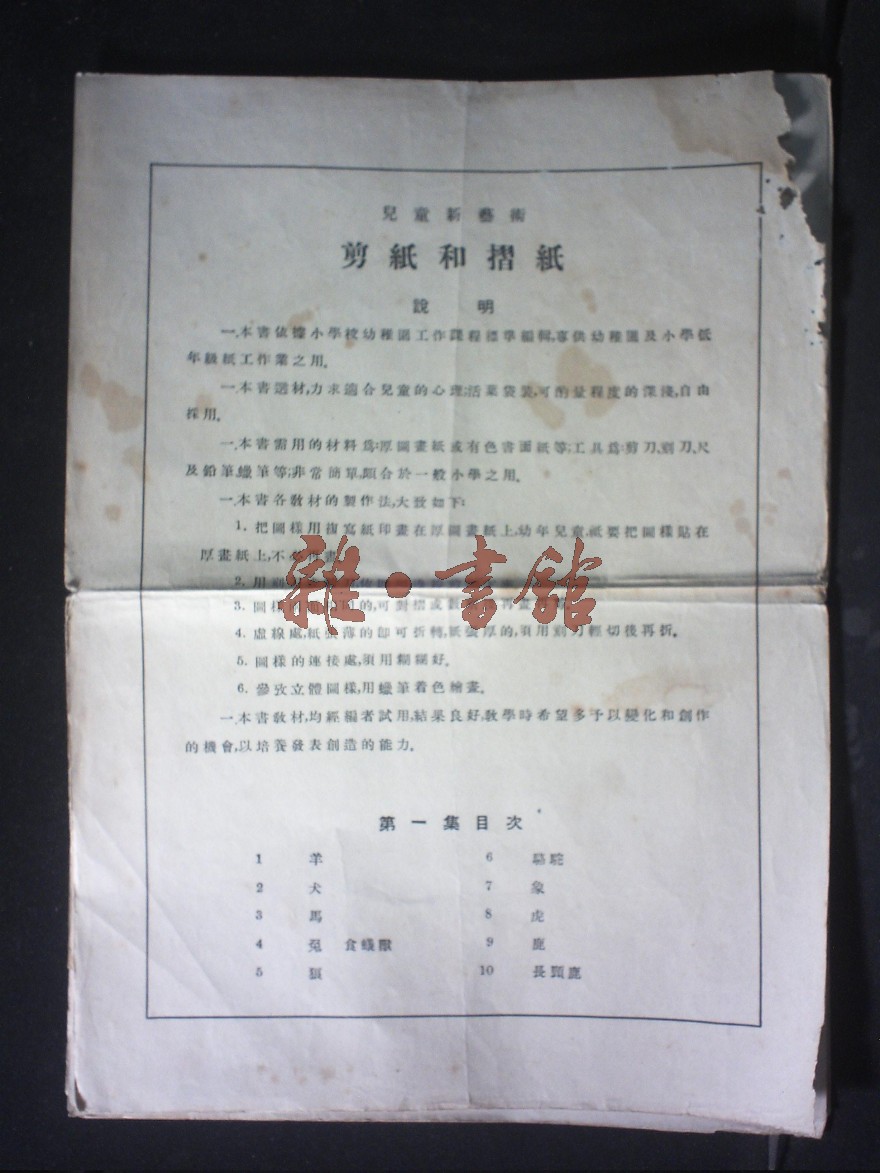 兒童新藝術
剪紙和摺紙
說 明
一.本書依據小學校幼稚園工作課程標準編輯,專供幼稚園及小學低
年級紙工作業之用。
一.本書選材,力求適合兒童的心理;活葉袋裝,可酌量程度的深淺,自由
採用。
一.本書需用的材料爲:厚圖畫紙或有色書面紙等;工具爲:剪刀,刻刀,尺
及鉛筆,蠟筆等;非常簡單,頗合於一般小學之用。
一.本書各教材的製作法,大致如下:
1. 把圖樣用複寫紙印畫在厚圖畫紙上,幼年兒童,祇要把圖樣貼在
厚畫紙上,不必
2. 用
3. 圖樣 的,可對摺或 再
4. 虛線處,紙張薄的即可折轉,紙張厚的,須用刻刀輕切後再折。
5. 圖樣的連接處,須用糊糊好。
6. 參攷立體圖樣,用蠟筆着色繪畫。
一.本書教材,均經編者試用,結果良好,教學時希望多予以變化和創作
的機會,以培養發表創造的能力。
雜·書館
第一集目次
1 羊 6 駱駝
2 犬 7 象
3 馬 8 虎
4 兔 食蟻獸 9 鹿
5 狼 10 長頸鹿